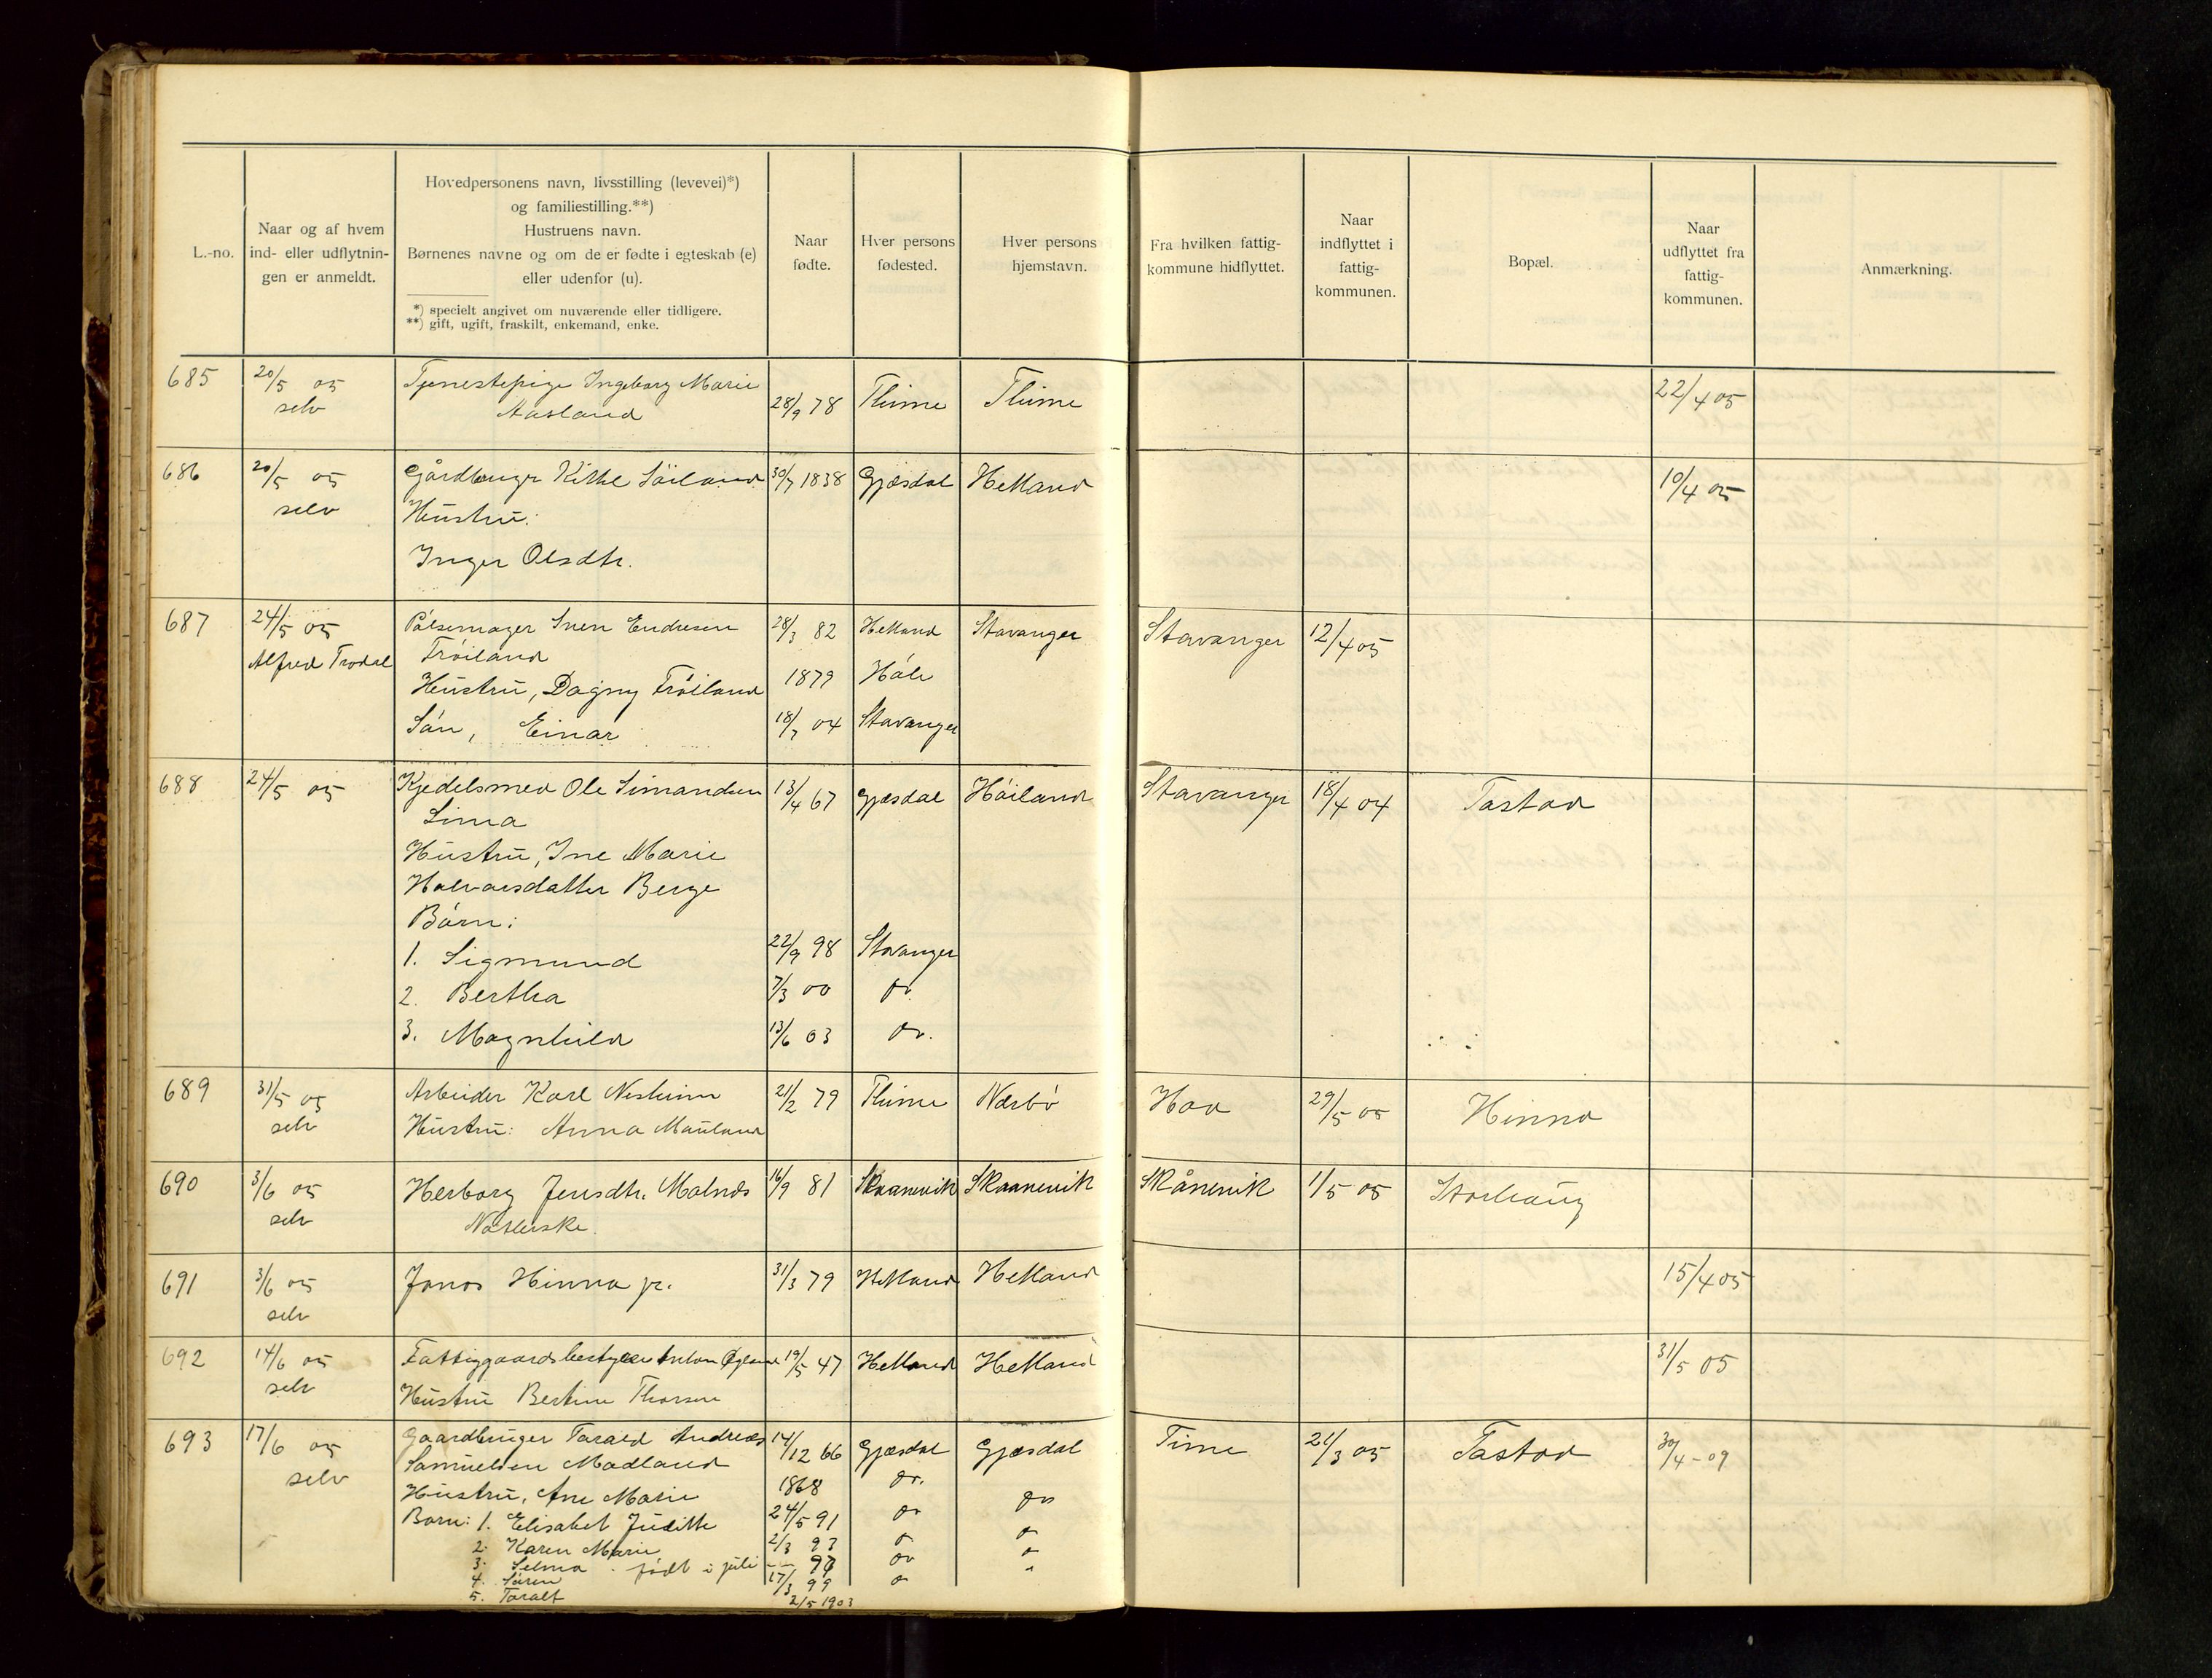 L.-no.
Naar og af hvem
ind- eller udflytnin-
gen er anmeldt.
Hovedpersonens navn, livsstilling (levevei)*)
og familiestilling.**)
Hustruens navn.
Børnenes navne og om de er fødte i egteskab (e)
eller udenfor (u).
*) specielt angivet om nuværende eller tidligere.
**) gift, ugift, fraskilt, enkemand, enke.
Naar
fødte.
Hver persons
fødested.
Hver persons
hjemstavn.
Fra hvilken fattig-
kommune hidflyttet.
Naar
indflyttet i
fattig-
kommunen.
Bopæl.
Naar
udflyttet fra
fattig-
kommunen.
Anmærkning.
685 20/5 05 Tjenestepige Ingeborg Marie
selv Aasland 28/9 78 Thime Thime 22/4 05
686 20/5 05 Gårdbruger Kittel Söiland 30/7 1838 Gjæsdal Hetland 10/4 05
selv Hustru:
Inger Olsdtr.
687 24/5 05 Pølsemager Sven Endresen 28/3 82 Hetland Stavanger Stavanger 12/4 05
Alfred Trodal Fröiland
Hustru, Dagny Fröiland 1879 Höle
Sön, Einar 18/7 04 Stavanger
688 24/5 05 Kjedelsmed Ole Simondsen 13/4 67 Gjæsdal Höiland Stavanger 18/4 04 Tastad
Lima
Hustru, Ine Marie
Halvorsdatter Berge
Börn:
1. Sigmund 22/9 98 Stavanger
2. Bertha 7/3 00 do.
3. Magnhild 13/6 03 do.
689 31/5 05 Arbeider Karl Nesheim 21/2 79 Thime Nærbö Haa 29/5 05 Hinna
selv Hustru: Anna Mauland
690 3/6 05 Herborg Jensdtr. Malnæs 16/9 81 Skaanevik Skaanevik Skånevik 1/5 05 Storhaug
selv
691 3/6 05 Jonas Hinna jr. 31/3 79 Hetland Hetland 15/4 05
selv
692 14/6 05 Fattiggaardsbestyrer Anton Øgland 19/5 47 Hetland Hetland 31/5 05
selv Hustru Bertine Thorsen
693 17/6 05 Gaardbruger Tarald Andreas 14/12 66 Gjæsdal Gjæsdal Time 21/3 05 Tastad 30/4-09
selv Samuelsen Madland
Hustru, Ane Marie 1868 do. do
Barn: 1. Elisabet Juditte 24/5 91 do
2. Karen Marie 2/3 93
3. Selma - født i juli
4. Sören 17/3 99
5. Taralt 2/5 1903